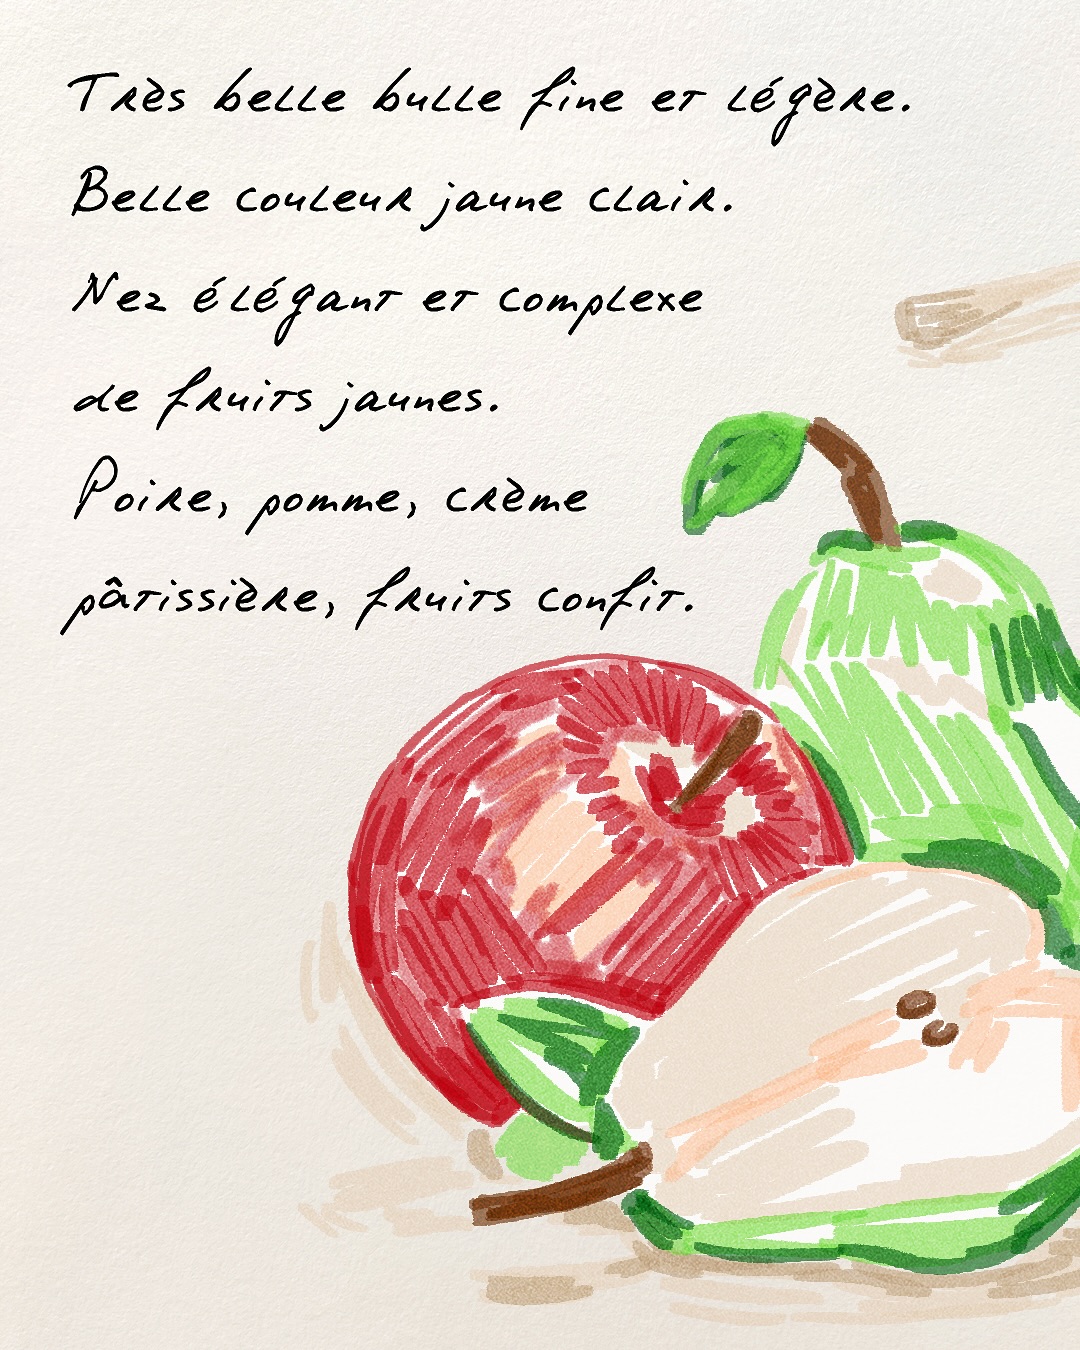 Très belle bulle fine et légère.
Belle couleur jaune clair.
Nez élégant et complexe
de fruits jaunes.
Poire, pomme, crème
pâtissière, fruits confit.